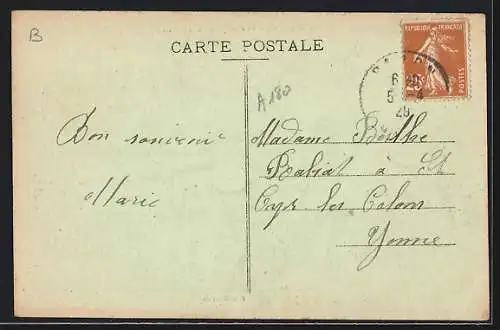 B
CARTE POSTALE
REPUBLIQUE FRANÇAISE
25c
POSTES
6
5
29
A180
Bon souvenir
Marie
Madame Berthe
Rabiat à St
Cyr les Colons
Yonne